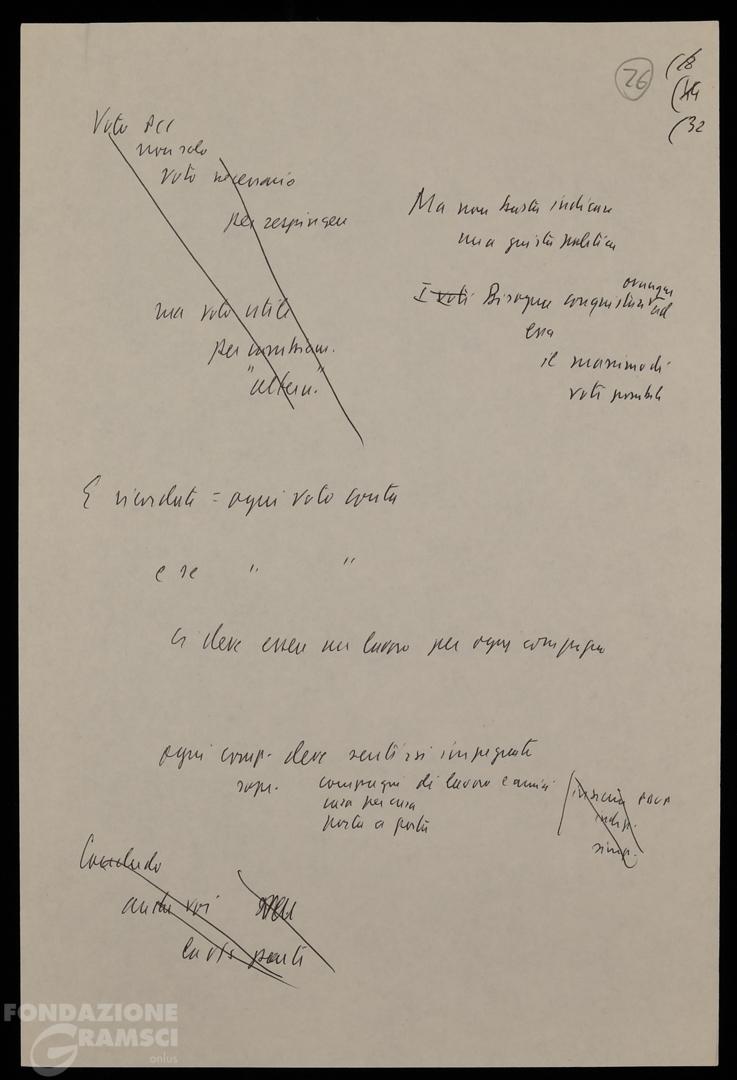 26
(28
(44
(32
Voto PCI
non solo
voto necessario
per respingere
ma voto utile
per cambiare.
"altern."
Ma non basta indicare
una giusta politica
I voti Bisogna conquistare ad
ovunque
essa
il massimo di
voti possibili
E ricordate = ogni voto conta
e se " "
ci deve essere un lavoro per ogni compagno
ogni comp. deve sentirsi impegnato
sopr. compagni di lavoro e amici
casa per casa
porta a porta
insieme PDUP
indip.
simp.
Concludo
anche voi
FONDAZIONE
GRAMSCI
onlus